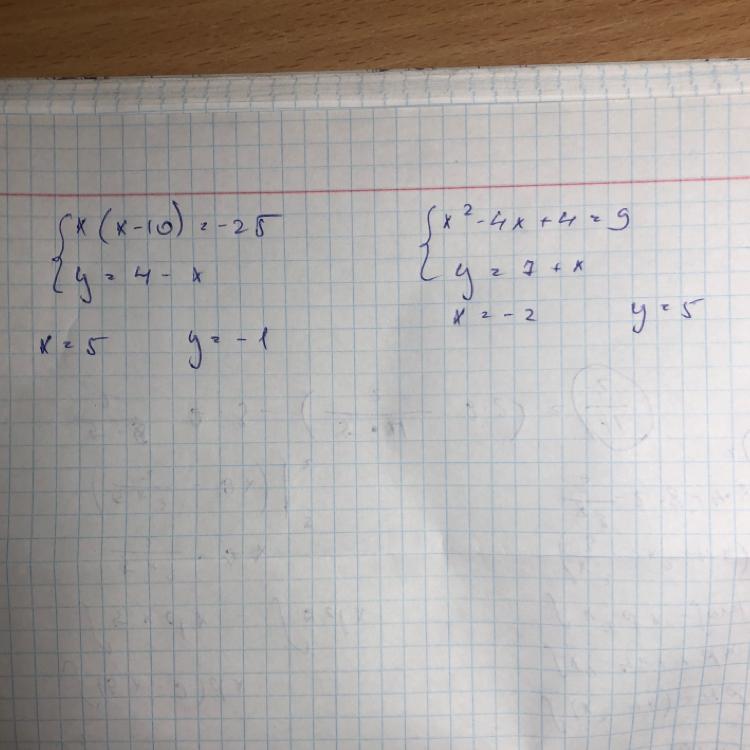 { x(x-10) = -25
y = 4 - x
x = 5 y = -1
{ x² - 4x + 4 = 9
y = 7 + x
x = -2 y = 5